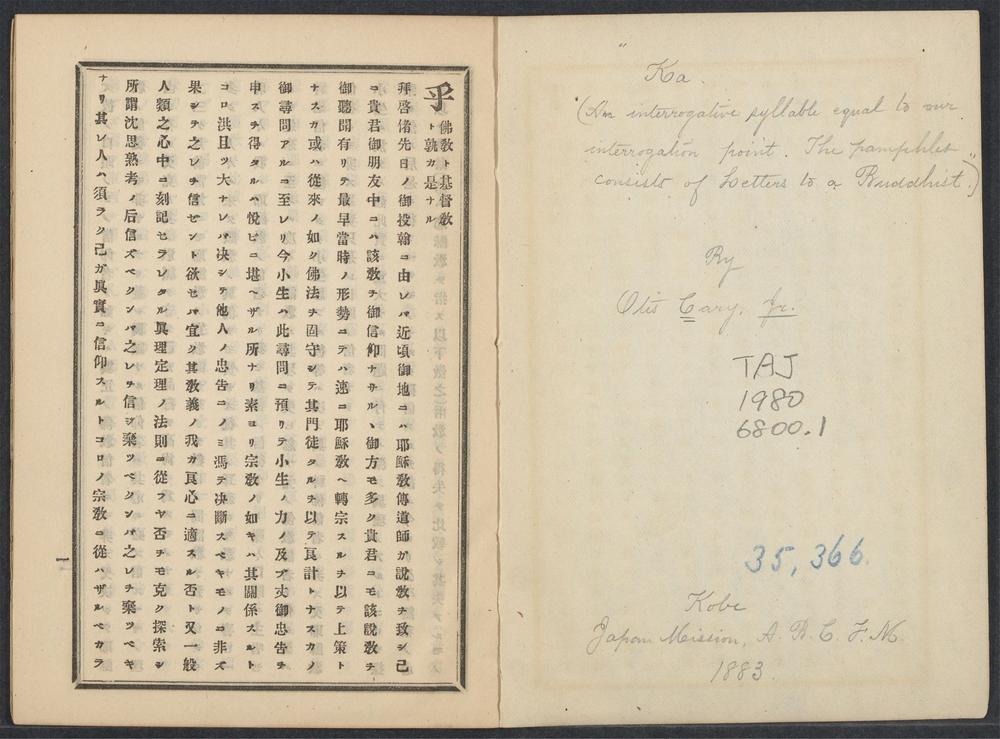 乎
佛敎ト基督敎
ト孰カ是ナル
拜啓偖先日ノ御投翰ニ由レバ近頃御地ニハ耶穌敎傳道師ガ說敎ヲ致シ己
ニ貴君御朋友中ニハ該敎ヲ御信仰ナサル、御方モ多ク貴君ニモ該說敎ヲ
御聽聞有リテ最早當時ノ形勢ニテハ速ニ耶穌敎ヘ轉宗スルヲ以テ上策ト
ナスカ或ハ從來ノ如ク佛法ヲ固守シテ其門徒タルヲ以テ良計トナスカノ
御尋問アルニ至レリ今小生ハ此尋問ニ預リテ小生ノ力ノ及ブ丈御忠告ヲ
申スヲ得タルハ悅ビニ堪ヘザル所ナリ素ヨリ宗敎ノ如キハ其關係スルト
コロ洪且ツ大ナレバ决シテ他人ノ忠告ニノミ馮テ决斷スベキモノニ非ズ
果シテ之レヲ信ゼント欲セバ宜ク其敎義ノ我カ良心ニ適スル否ト又一般
人類之心中ニ刻記セラレタル眞理定理ノ法則ニ從フヤ否ヲモ克ク探索シ
所謂沈思熟考ノ后信ズベクンバ之レヲ信ジ棄ツベクンバ之レヲ棄ツベキ
ナリ其レ人ハ須ラク己ガ眞實ニ信仰スルトコロノ宗敎ニ從ハザルベカラ
一
Ka.
"(An interrogative syllable equal to our
interrogation point. The pamphlet
consists of Letters to a Buddhist.")
By
Otis Cary, Jr.
TAJ
1980
6800.1
35,366.
Kobe
Japan Mission, A. B. C. F. M.
1883.